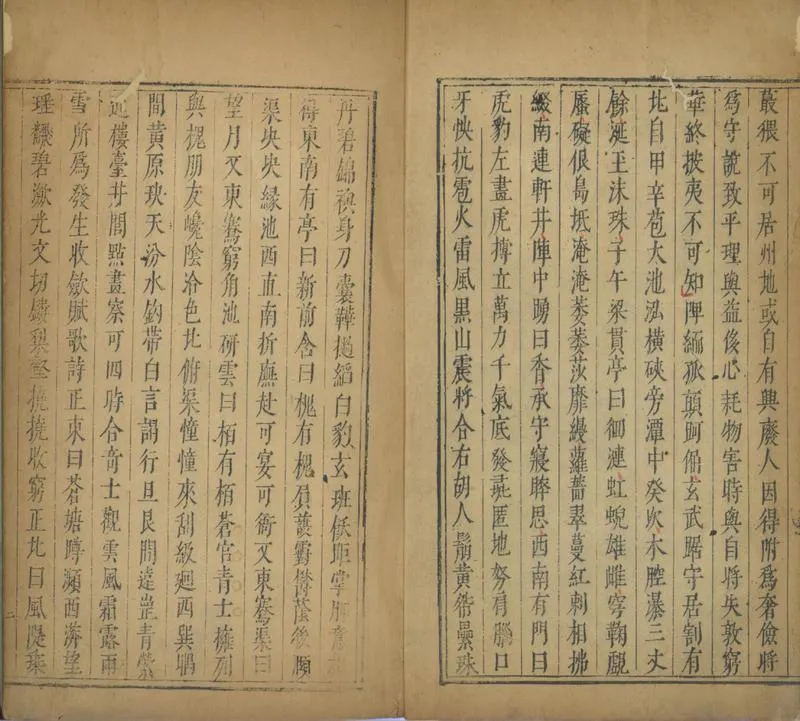 蕞猥不可居州地或自有興廢人因得附爲奢儉將
爲守說致平理與益侈心耗物害時與自將失敦窮
華終披夷不可知陴緬孤顛跒倔玄武踞守居割有
北自甲辛苞大池泓橫硤旁潭中癸次木腔瀑三丈
餘涎玉沫珠子午梁貫亭曰洄漣虹蜺雄雌穹鞠覷
蜃礙佷島坻淹淹萎萎莎靡縵蘿薔翠蔓紅刺相拂
綴南連軒井陣中踴曰香承守寢睟思西南有門曰
虎豹左畫虎摶立萬力千氣底發彘匿地努肩腦口
牙怏抗雹火雷風黑山震將合右胡人鬅黃帬纍珠
丹碧錦襖身刀囊鞾撾縚白豹玄班飫距掌胛意
得東南有亭曰新前含曰槐有槐屓護霮鬱蔭後頤
渠央央緣池西直南折廡赴可宴可衙又東騫渠曰
望月又東騫窮角池研雲曰栢有栢蒼官青士擁列
與槐朋友巉陰洽色北俯渠憧憧來刮級廻西巽隅
間黃原玦天汾水鈎帶白言謁行旦艮間遠崗青縈
近樓臺井閭點畫察可四時合奇士觀雲風霜露雨
雪所爲發生收斂賦歌詩正東曰蒼塘蹲瀕西漭望
瑤飜碧瀲光文切鏤梨撓撓收窮正北曰風隄乘